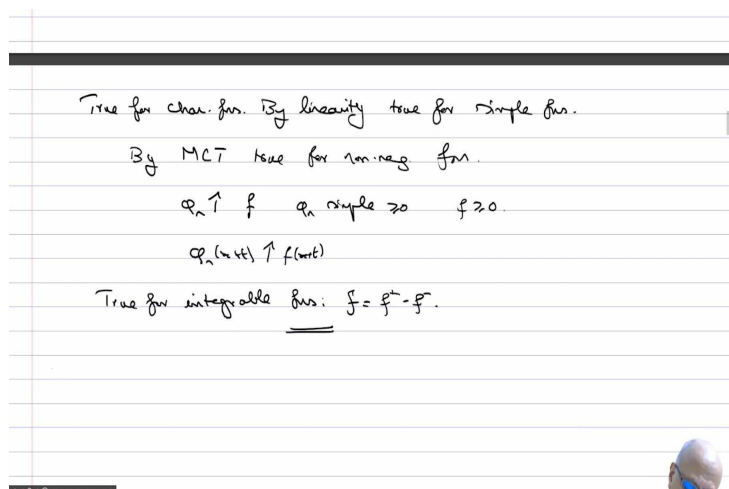 True for char. fns. By linearity true for simple fns.
By MCT true for non.neg fns.
φₙ ↑ f φₙ simple ≥0 f ≥0.
φₙ(x+t) ↑ f(x+t)
True for integrable fns: f = f⁺-f⁻.